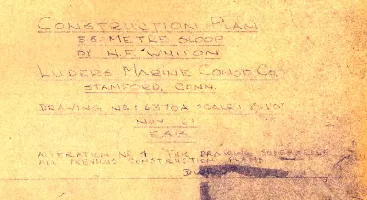 CONSTRUCTION PLAN
5.5 METRE SLOOP
BY N.E. WHITON
LUDERS MARINE CONST. CO.
STAMFORD, CONN.
DRAWING NO.
NOV 61
ALTERATION NR 4 THIS DRAWING SUPERSEDES
ALL PREVIOUS CONSTRUCTION PLANS